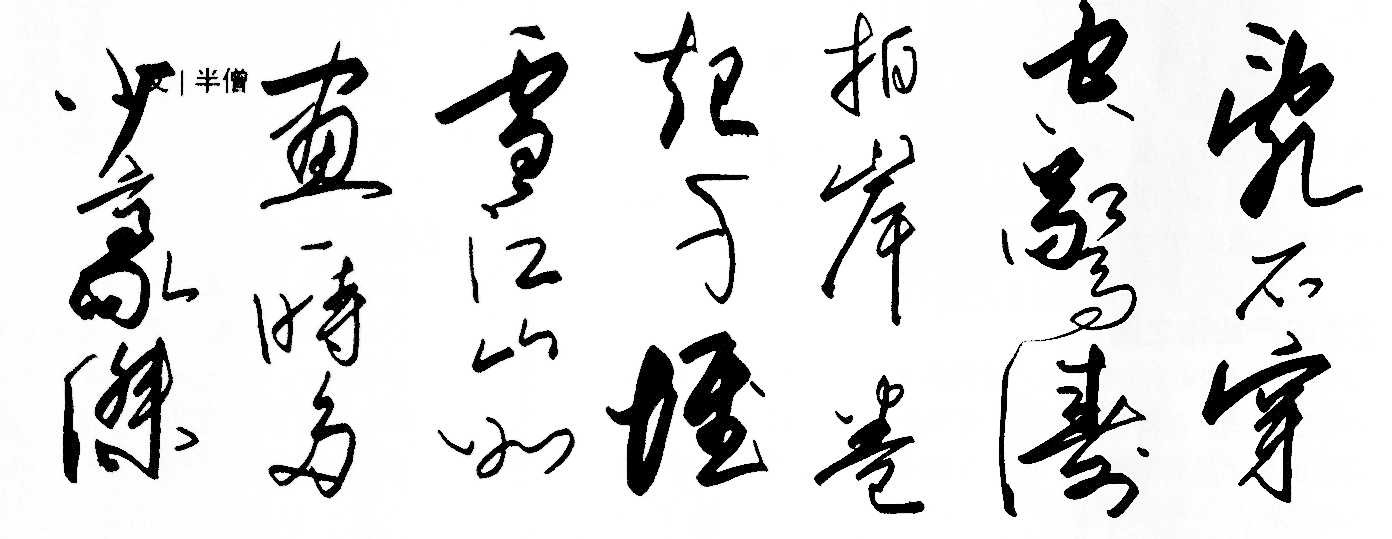 亂石穿
空驚濤
拍岸卷
起千堆
雪江山如
畫一時多
少豪傑
文 | 半僧